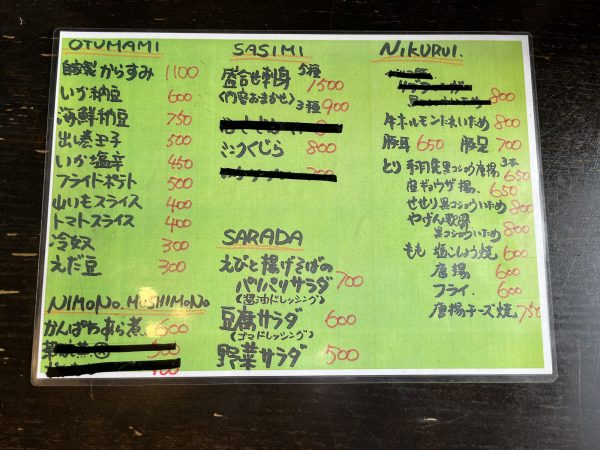 OTUMAMI
自家製からすみ 1100
いか納豆 600
海鮮納豆 750
出し巻玉子 500
いか塩辛 450
フライドポテト 500
山いもスライス 400
トマトスライス 400
冷奴 300
えだ豆 300
NIMONO.MUSHIMONO
かんぱちあら煮 600
500
SASIMI
盛合せ刺身 5種 1500
(内容おまかせ) 3種 900
ミンククじら 800
700
SARADA
えびと揚げそばの
パリパリサラダ 700
(醤油ドレッシング)
豆腐サラダ 600
(ゴマドレッシング)
野菜サラダ 500
NIKURUI.
800
牛ホルモンどれいため 800
豚耳 650 豚足 700
とり 手羽先黒コショウ唐揚 3本 650
皮ギョウザ揚 650
せせり黒コショウいため 800
やげん軟骨
黒コショウいため 800
もも 塩こしょう焼 600
唐揚 600
フライ 600
唐揚チーズ焼 750